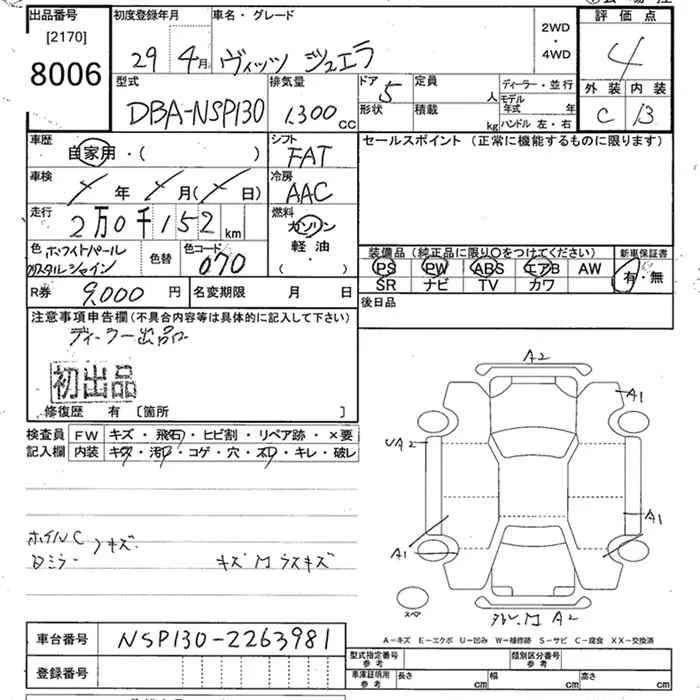 出品番号
[2170]
8006
初度登録年月
29 4月
車名・グレード
ヴィッツ ジュエラ
2WD
・
4WD
評価点
4
型式
DBA-NSP130
排気量
1300cc
ドア
5
形状
定員
人
積載
kg
ディーラー・並行
モデル年式 年
ハンドル 左・右
外装 内装
C B
車歴
自家用・( )
シフト
FAT
セールスポイント (正常に機能するものに限ります)
車検
年 月( 日)
冷房
AAC
走行
2万0千152km
燃料
ガソリン
軽油・
( )
色 ホワイトパール
クリスタルシャイン
色替
色コード
070
装備品(純正品に限り○をつけてください)
PS PW ABS エアB AW
SR ナビ TV カワ
新車保証書
有・無
R券 9,000円
名変期限 月 日
後日品
注意事項申告欄(不具合内容等は具体的に記入して下さい)
ディーラー出品
初出品
修復歴 有 [箇所 ]
検査員
記入欄
FW キズ・飛石・ヒビ割・リペア跡・×要
内装 キズ・汚れ・コゲ・穴・スレ・キレ・破レ
ホイルC
Dミラー
キズ
A2
A1
UA2
A1
A1
スペア
A2
A-キズ E-エクボ U-凹み W-補修跡 S-サビ C-腐食 XX-交換済
車台番号 NSP130-2263981
登録番号
型式指定番号
参考
類別区分番号
参考
車庫証明用
参考
長さ cm 幅 cm 高さ cm